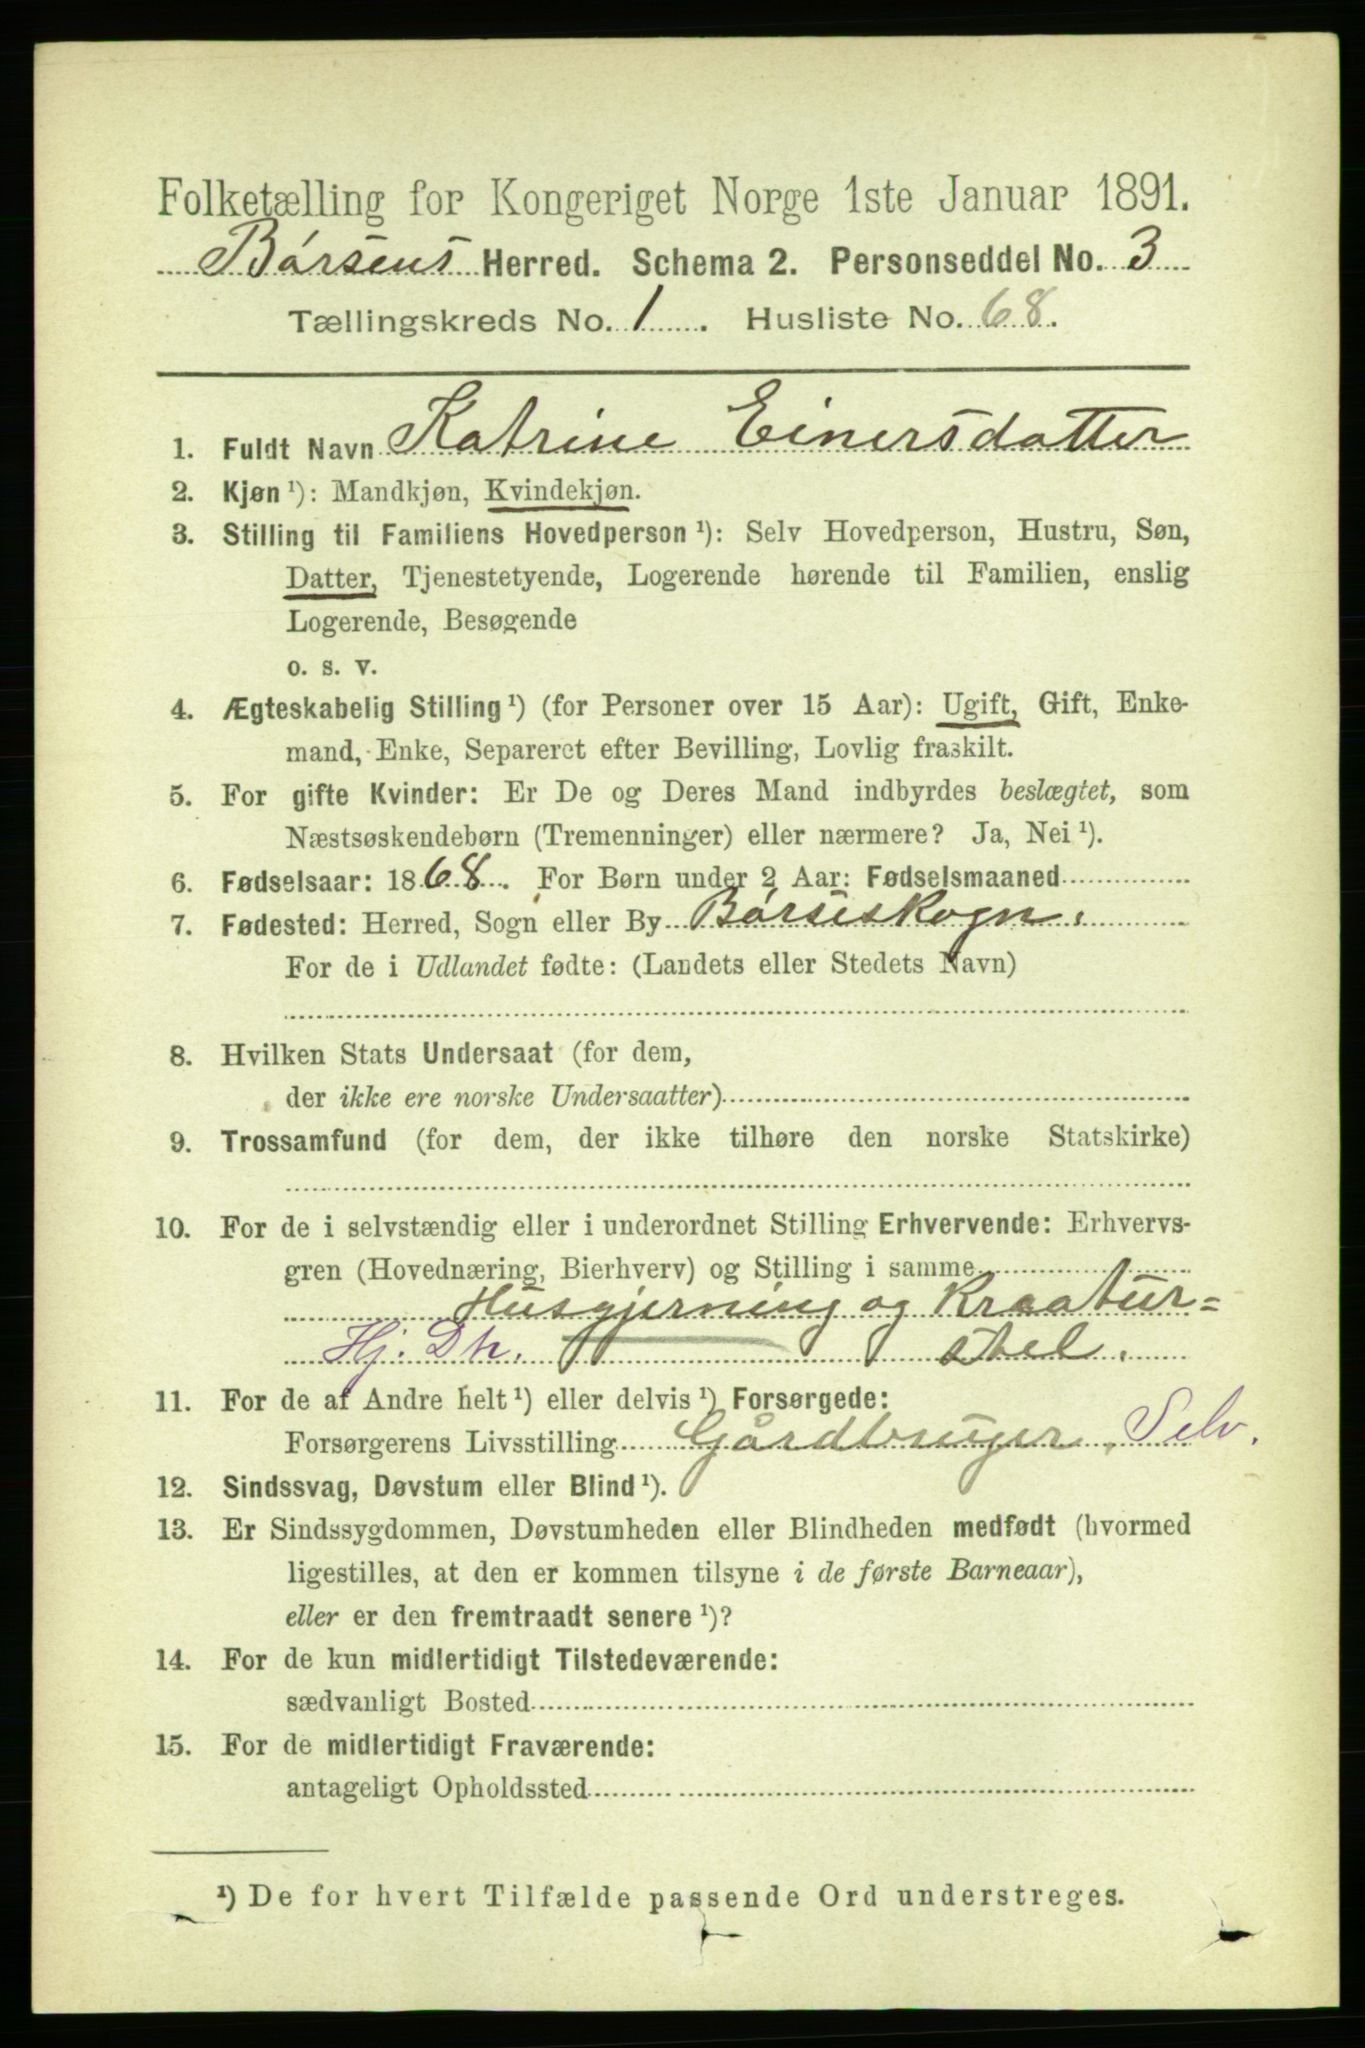 Folketælling for Kongeriget Norge 1ste Januar 1891.
Børsens Herred. Schema 2. Personseddel No. 3
Tællingskreds No. 1. Husliste No. 68.
1. Fuldt Navn Katrine Einersdatter
2. Kjøn ¹): Mandkjøn, Kvindekjøn.
3. Stilling til Familiens Hovedperson ¹): Selv Hovedperson, Hustru, Søn,
Datter, Tjenestetyende, Logerende hørende til Familien, enslig
Logerende, Besøgende
o. s. v.
4. Ægteskabelig Stilling ¹) (for Personer over 15 Aar): Ugift, Gift, Enke-
mand, Enke, Separeret efter Bevilling, Lovlig fraskilt.
5. For gifte Kvinder: Er De og Deres Mand indbyrdes beslægtet, som
Næstsøskendebørn (Tremenninger) eller nærmere? Ja, Nei ¹).
6. Fødselsaar: 1868. For Børn under 2 Aar: Fødselsmaaned
7. Fødested: Herred, Sogn eller By Børseskogn.
For de i Udlandet fødte: (Landets eller Stedets Navn)
8. Hvilken Stats Undersaat (for dem,
der ikke ere norske Undersaatter)
9. Trossamfund (for dem, der ikke tilhøre den norske Statskirke)
10. For de i selvstændig eller i underordnet Stilling Erhvervende: Erhvervs-
gren (Hovednæring, Bierhverv) og Stilling i samme
Husgjerning og Kraatur=
Hj. Dtr. stel.
11. For de af Andre helt ¹) eller delvis ¹) Forsørgede:
Forsørgerens Livsstilling Gårdbruger, Selv.
12. Sindssvag, Døvstum eller Blind ¹).
13. Er Sindssygdommen, Døvstumheden eller Blindheden medfødt (hvormed
ligestilles, at den er kommen tilsyne i de første Barneaar),
eller er den fremtraadt senere ¹)?
14. For de kun midlertidigt Tilstedeværende:
sædvanligt Bosted
15. For de midlertidigt Fraværende:
antageligt Opholdssted
¹) De for hvert Tilfælde passende Ord understreges.